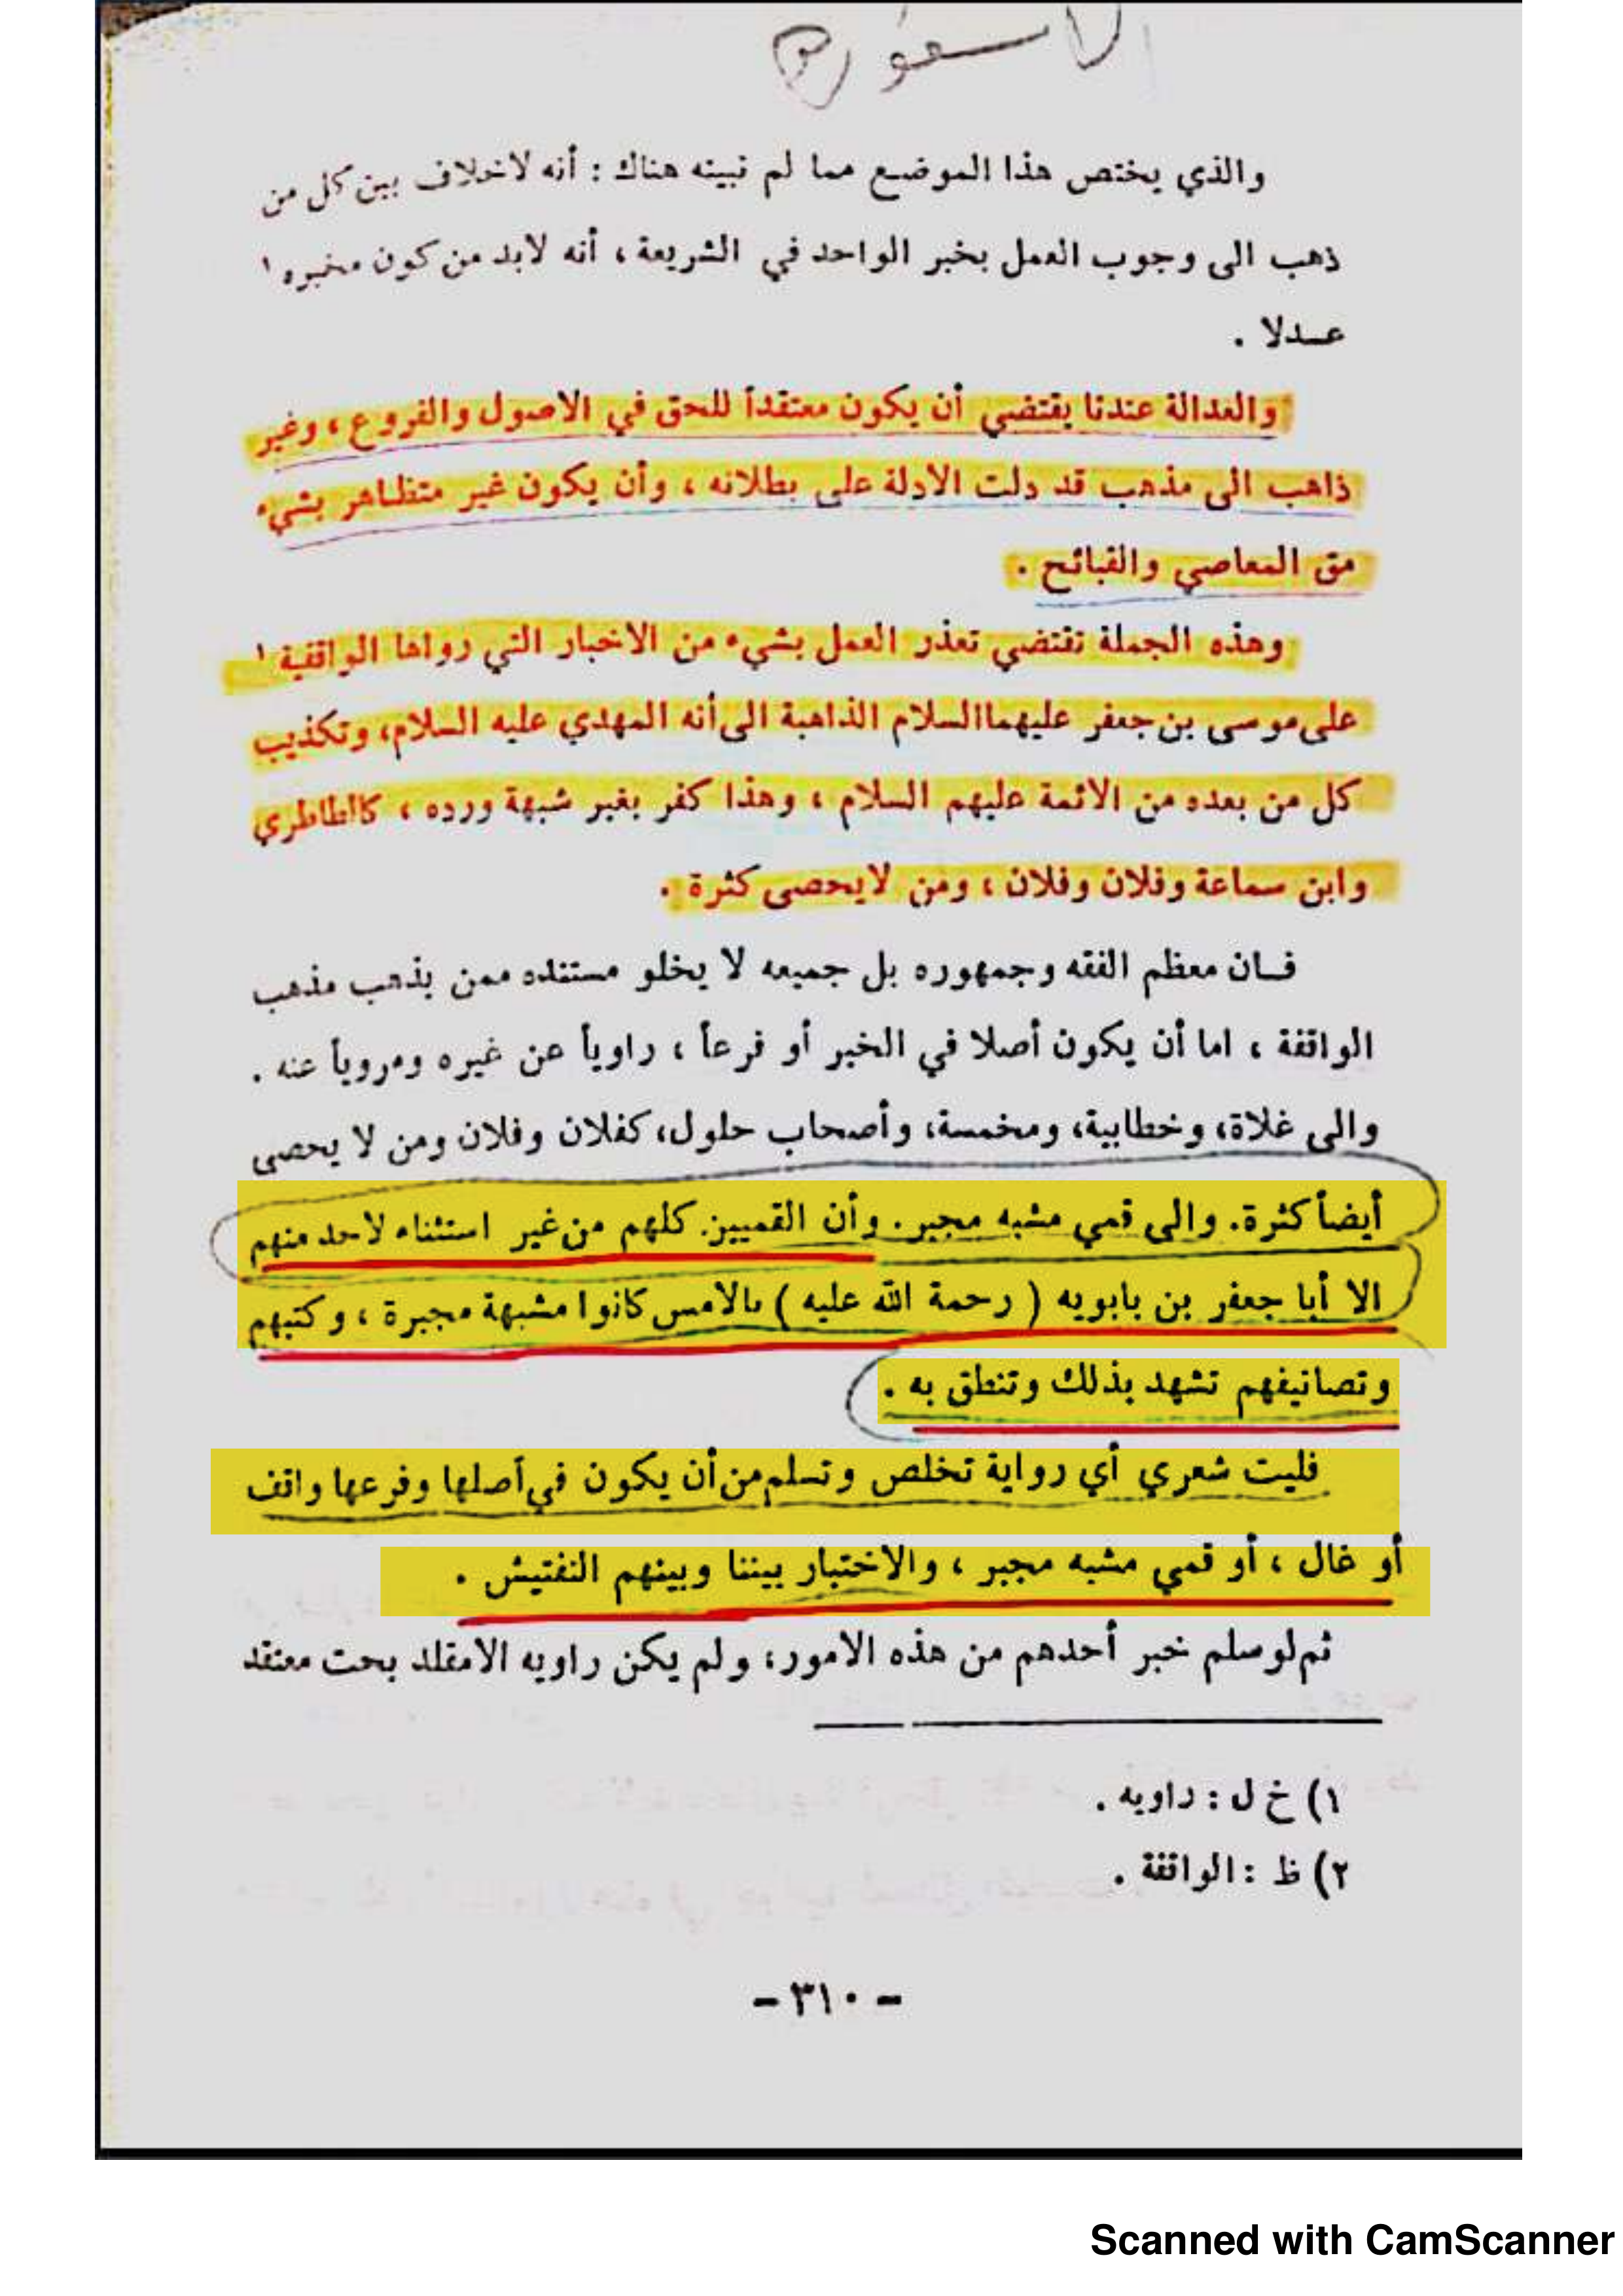 والذي يختص هذا الموضع مما لم نبينه هناك : أنه لاخلاف بين كل من
ذهب الى وجوب العمل بخبر الواحد في الشريعة ، أنه لابد من كون مخبره ١
عـدلا .
والعدالة عندنا يقتضي أن يكون معتقداً للحق في الاصول والفروع ، وغير
ذاهب الى مذهب قد دلت الادلة على بطلانه ، وأن يكون غير متظاهر بشيء
مق المعاصي والقبائح .
وهذه الجملة تقتضي تعذر العمل بشيء من الاخبار التي رواها الواقفية ١
على موسى بن جعفر عليهما السلام الذاهبة الى أنه المهدي عليه السلام، وتكذيب
كل من بعده من الائمة عليهم السلام ، وهذا كفر بغير شبهة ورده ، كالطاطري
وابن سماعة وفلان وفلان ، ومن لايحصى كثرة .
فـان معظم الفقه وجمهوره بل جميعه لا يخلو مستنده ممن يذهب مذهب
الواقفة ، اما أن يكون أصلا في الخبر أو فرعاً ، راوياً عن غيره ومروياً عنه .
والى غلاة، وخطابية، ومخمسة، وأصحاب حلول، كفلان وفلان ومن لا يحصى
أيضاً كثرة. والى قمي مشبه مجبر. وأن القميين كلهم من غير استثناء لاحد منهم
الا أبا جعفر بن بابويه ( رحمة الله عليه ) بالامس كانوا مشبهة مجبرة ، وكتبهم
وتصانيفهم تشهد بذلك وتنطق به .
فليت شعري أي رواية تخلص وتسلم من أن يكون في أصلها وفرعها واقف
أو غال ، أو قمي مشبه مجبر ، والاختبار بيننا وبينهم التفتيش .
ثم لو سلم خبر أحدهم من هذه الامور، ولم يكن راويه الا مقلد بحت معتقد
١) خ ل : راويه .
٢) ظ : الواقفة .
- ٣١٠ -
Scanned with CamScanner